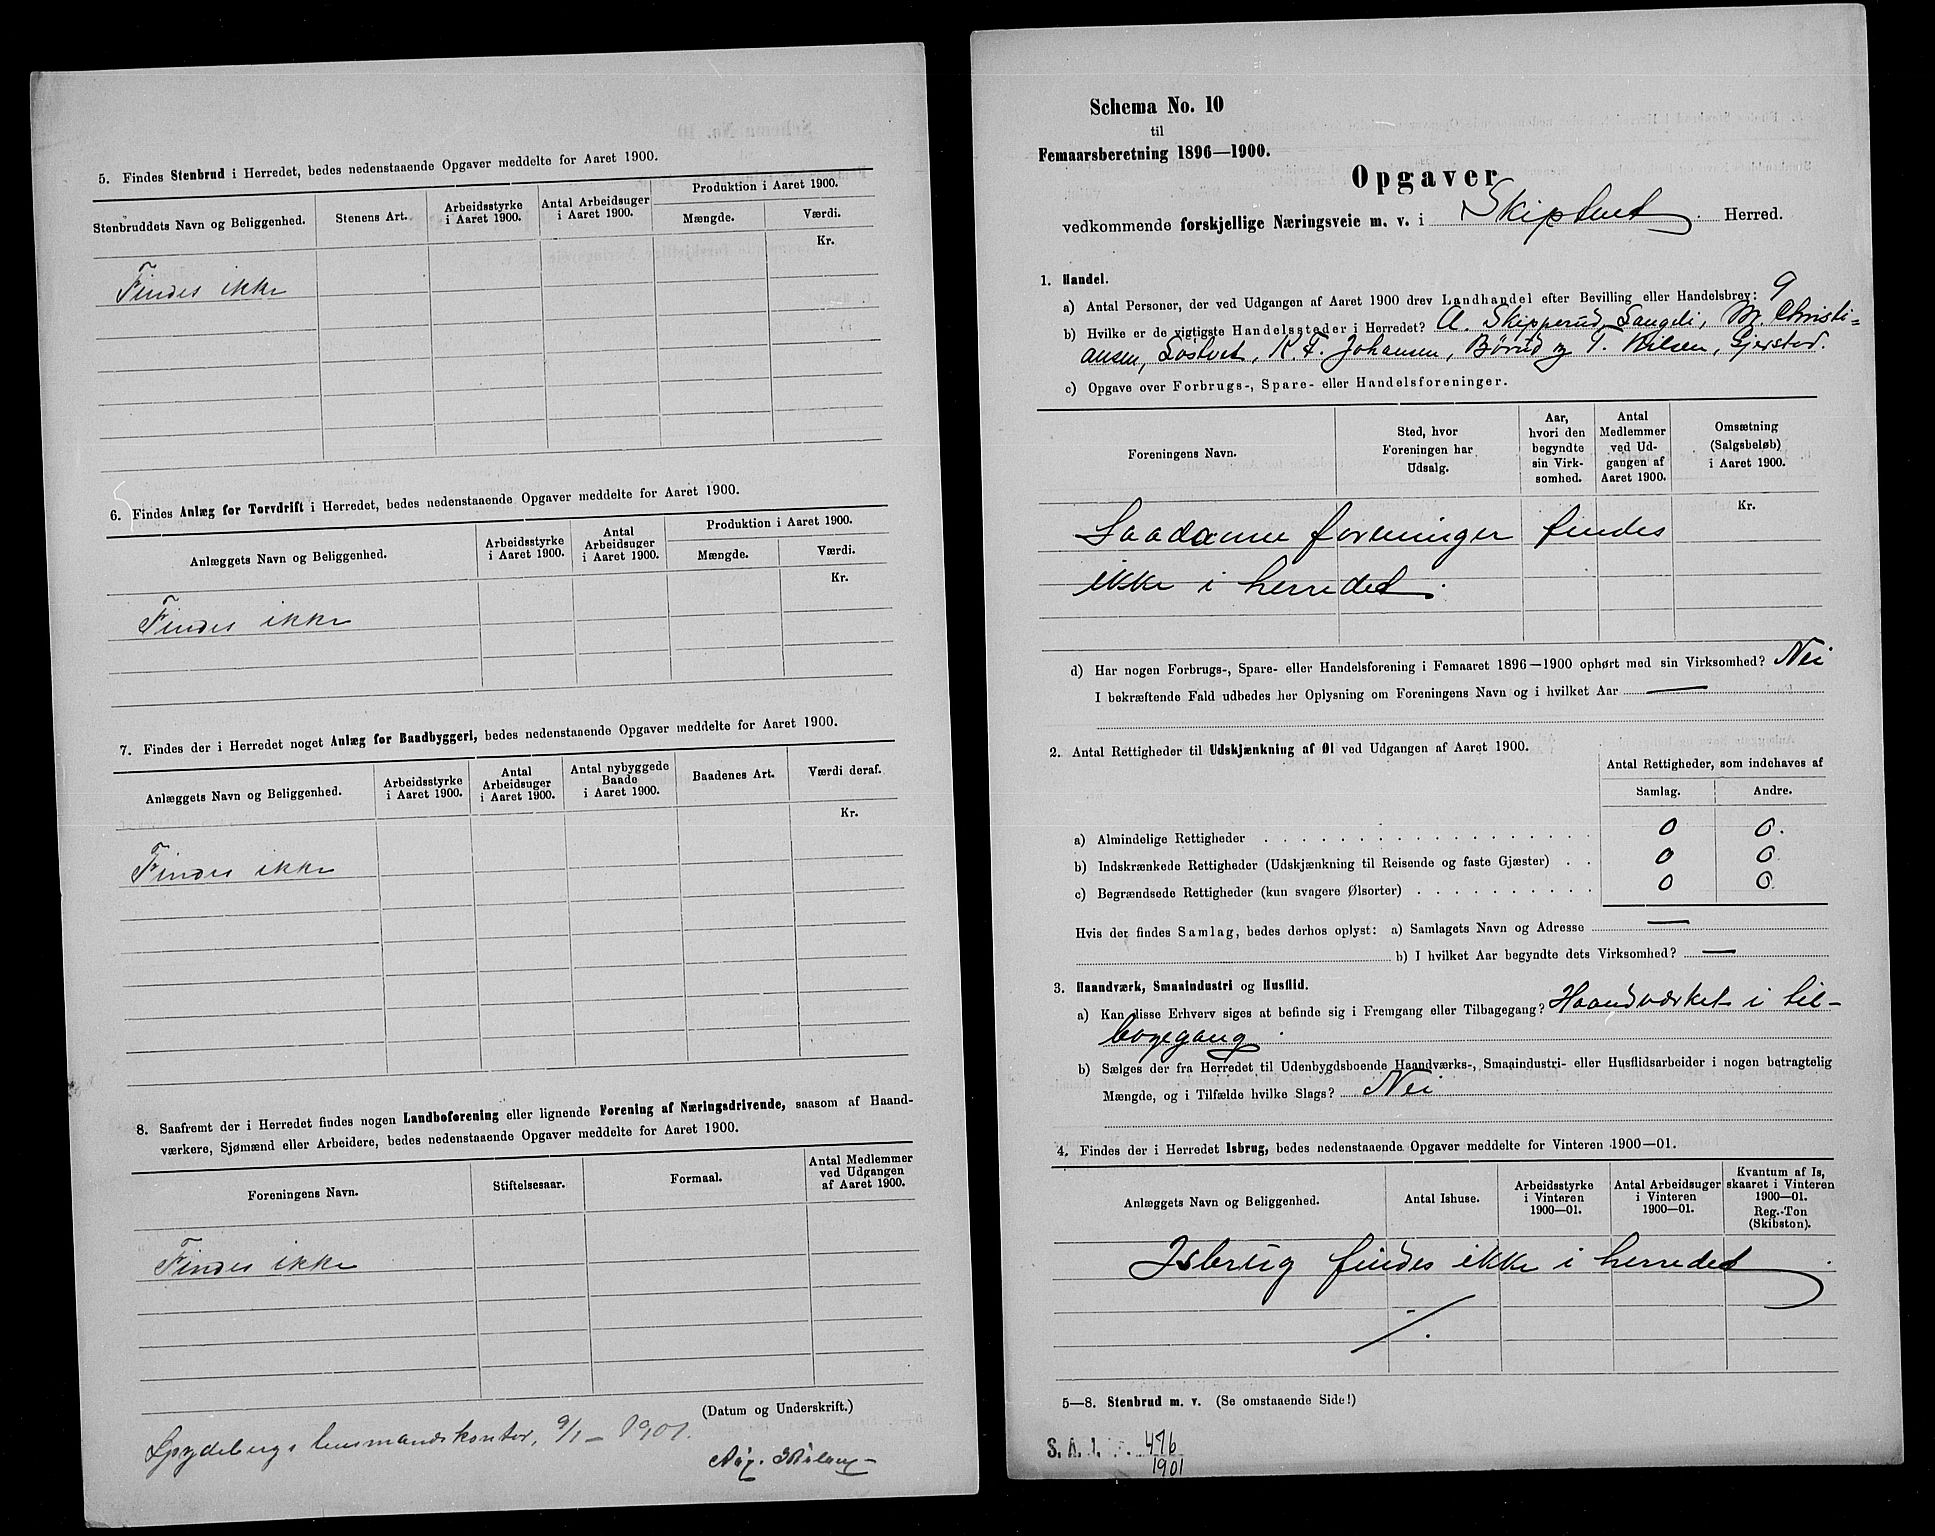 5. Findes Stenbrud i Herredet, bedes nedenstaaende Opgaver meddelte for Aaret 1900.
Stenbruddets Navn og Beliggenhed. Stenens Art. Arbeidsstyrke i Aaret 1900. Antal Arbeidsuger i Aaret 1900. Produktion i Aaret 1900. Mængde. Værdi.
Kr.
Findes ikke
6. Findes Anlæg for Torvdrift i Herredet, bedes nedenstaaende Opgaver meddelte for Aaret 1900.
Anlæggets Navn og Beliggenhed. Arbeidsstyrke i Aaret 1900. Antal Arbeidsuger i Aaret 1900. Produktion i Aaret 1900. Mængde. Værdi.
Kr.
Findes ikke
7. Findes der i Herredet noget Anlæg for Baadbyggeri, bedes nedenstaaende Opgaver meddelte for Aaret 1900.
Anlæggets Navn og Beliggenhed. Arbeidsstyrke i Aaret 1900. Antal Arbeidsuger i Aaret 1900. Antal nybyggede Baade i Aaret 1900. Baadenes Art. Værdi deraf.
Kr.
Findes ikke
8. Saafremt der i Herredet findes nogen Landboforening eller lignende Forening af Næringsdrivende, saasom af Haand-
værkere, Sjømænd eller Arbeidere, bedes nedenstaaende Opgaver meddelte for Aaret 1900.
Foreningens Navn. Stiftelsesaar. Formaal. Antal Medlemmer ved Udgangen af Aaret 1900.
Findes ikke
(Datum og Underskrift.)
Spydebergs lensmandskontor, 9/1 – 1901.
Schema No. 10
til
Femaarsberetning 1896—1900.
Opgaver
vedkommende forskjellige Næringsveie m. v. i Skiptvet Herred.
1. Handel.
a) Antal Personer, der ved Udgangen af Aaret 1900 drev Landhandel efter Bevilling eller Handelsbrev: 9
b) Hvilke er de vigtigste Handelssteder i Herredet? A. Skipperud, Langli, M. Christi=
ansen, Lostvet, K. F. Johansen, Børud og T. Nilsen, Gjerstad.
c) Opgave over Forbrugs-, Spare- eller Handelsforeninger.
Foreningens Navn. Sted, hvor Foreningen har Udsalg. Aar, hvori den begyndte sin Virksomhed. Antal Medlemmer ved Udgangen af Aaret 1900. Omsætning (Salgsbeløb) i Aaret 1900.
Kr.
Saadanne foreninger findes
ikke i herredet.
d) Har nogen Forbrugs-, Spare- eller Handelsforening i Femaaret 1896—1900 ophørt med sin Virksomhed? Nei
I bekræftende Fald udbedes her Oplysning om Foreningens Navn og i hvilket Aar —
2. Antal Rettigheder til Udskjænkning af Øl ved Udgangen af Aaret 1900.
Antal Rettigheder, som indehaves af
Samlag. Andre.
a) Almindelige Rettigheder 0 0.
b) Indskrænkede Rettigheder (Udskjænkning til Reisende og faste Gjæster) 0 0
c) Begrændsede Rettigheder (kun svagere Ølsorter) 0 0.
Hvis der findes Samlag, bedes derhos oplyst: a) Samlagets Navn og Adresse —
b) I hvilket Aar begyndte dets Virksomhed? —
3. Haandværk, Smaaindustri og Husflid.
a) Kan disse Erhverv siges at befinde sig i Fremgang eller Tilbagegang? Haandværket i til-
bagegang.
b) Sælges der fra Herredet til Udenbygdsboende Haandværks-, Smaaindustri- eller Husflidsarbeider i nogen betragtelig
Mængde, og i Tilfælde hvilke Slags? Nei
4. Findes der i Herredet Isbrug, bedes nedenstaaende Opgaver meddelte for Vinteren 1900—01.
Anlæggets Navn og Beliggenhed. Antal Ishuse. Arbeidsstyrke i Vinteren 1900—01. Antal Arbeidsuger i Vinteren 1900—01. Kvantum af Is, skaaret i Vinteren 1900—01. Reg.-Ton (Skibston).
Isbrug findes ikke i herredet
5—8. Stenbrud m. v. (Se omstaaende Side!)
476
1901